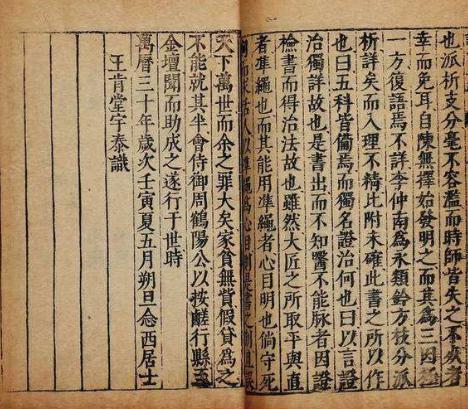 也派析支分毫不容濫而時師皆失之不死者
幸而免耳自陳無擇始發明之而其為三因極
一方復語焉不詳李仲南為永類鈐方枝分派
析詳矣而入理不精比附未確此書之所以作
也曰五科皆備焉而獨名證治何也曰以言證
治獨詳故也是書出而不知醫不能脉者因證
檢書而得治法故也雖然大匠之所取平與直
者準繩也而其能用準繩者心目明也倘守死
而求活人以準繩為心目則是書之刻且誤
天下萬世而余之罪大矣家貧無貲假貸為之
不能就其半會侍御周鶴陽公以按鹺行縣至
金壇聞而助成之遂行于世時
萬曆三十年歲次壬寅夏五月朔旦念西居士
王肯堂宇泰識